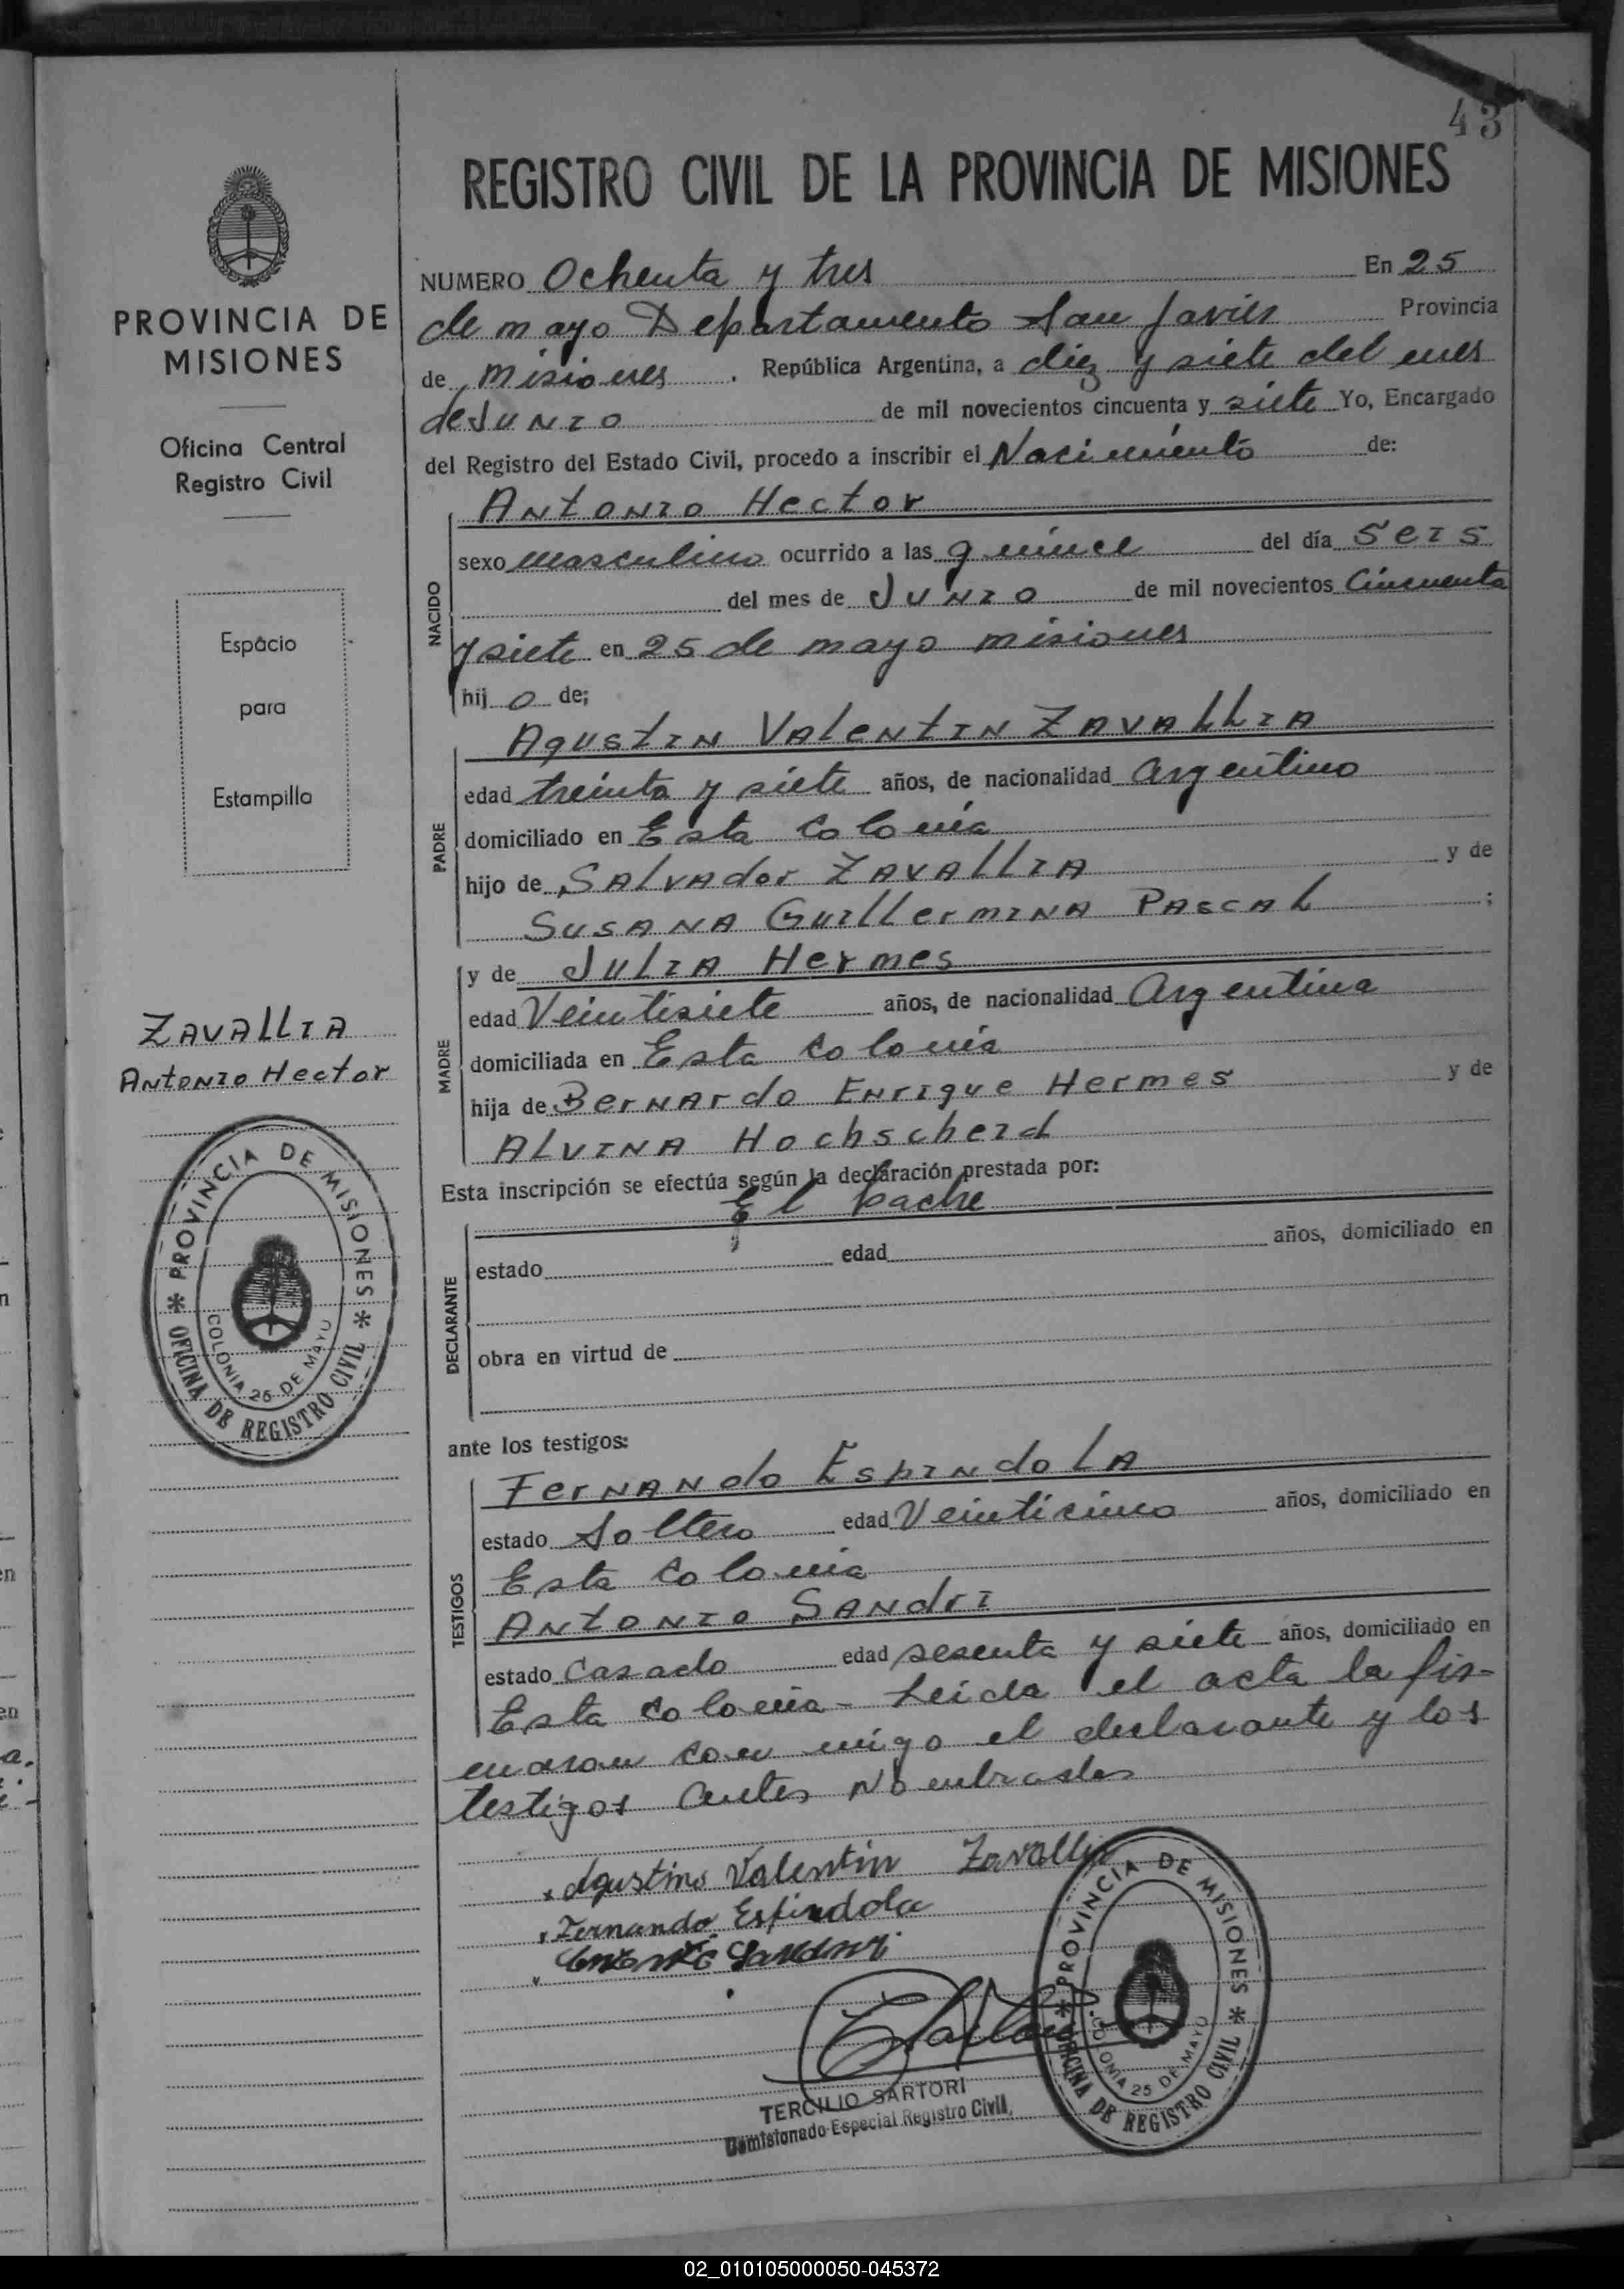 43
REGISTRO CIVIL DE LA PROVINCIA DE MISIONES
PROVINCIA DE
MISIONES
Oficina Central
Registro Civil
Espacio
para
Estampilla
ZAVALLIA
Antonio Hector
PROVINCIA DE MISIONES
OFICINA DE REGISTRO CIVIL
COLONIA 25 DE MAYO
NUMERO Ochenta y tres En 25
de mayo Departamento San Javier Provincia
de misiones. República Argentina, a diez y siete del mes
de Junio de mil novecientos cincuenta y siete Yo, Encargado
del Registro del Estado Civil, procedo a inscribir el Nacimiento de:
NACIDO
Antonio Hector
sexo masculino ocurrido a las quince del día seis
del mes de Junio de mil novecientos Cincuenta
y siete en 25 de mayo misiones
hijo de;
PADRE
Agustin Valentin Zavallia
edad treinta y siete años, de nacionalidad Argentino
domiciliado en Esta Colonia
hijo de Salvador Zavallia y de
Susana Guillermina Pascal ;
MADRE
y de Julia Hermes
edad Veintisiete años, de nacionalidad Argentina
domiciliada en Esta Colonia
hija de Bernardo Enrique Hermes y de
Alvina Hochscheid
Esta inscripción se efectúa según la declaración prestada por:
El padre
DECLARANTE
estado edad años, domiciliado en
obra en virtud de
ante los testigos:
TESTIGOS
Fernando Espindola
estado Soltero edad Veinticinco años, domiciliado en
Esta Colonia
Antonio Sandri
estado Casado edad sesenta y siete años, domiciliado en
Esta colonia - Leida el acta la fir-
maron con migo el declarante y los
testigos antes Nombrados
Agustino Valentin Zavallia
Fernando Espindola
Sandri
TERCILIO SARTORI
Comisionado Especial Registro Civil,
PROVINCIA DE MISIONES
OFICINA DE REGISTRO CIVIL
COLONIA 25 DE MAYO
02_010105000050-045372